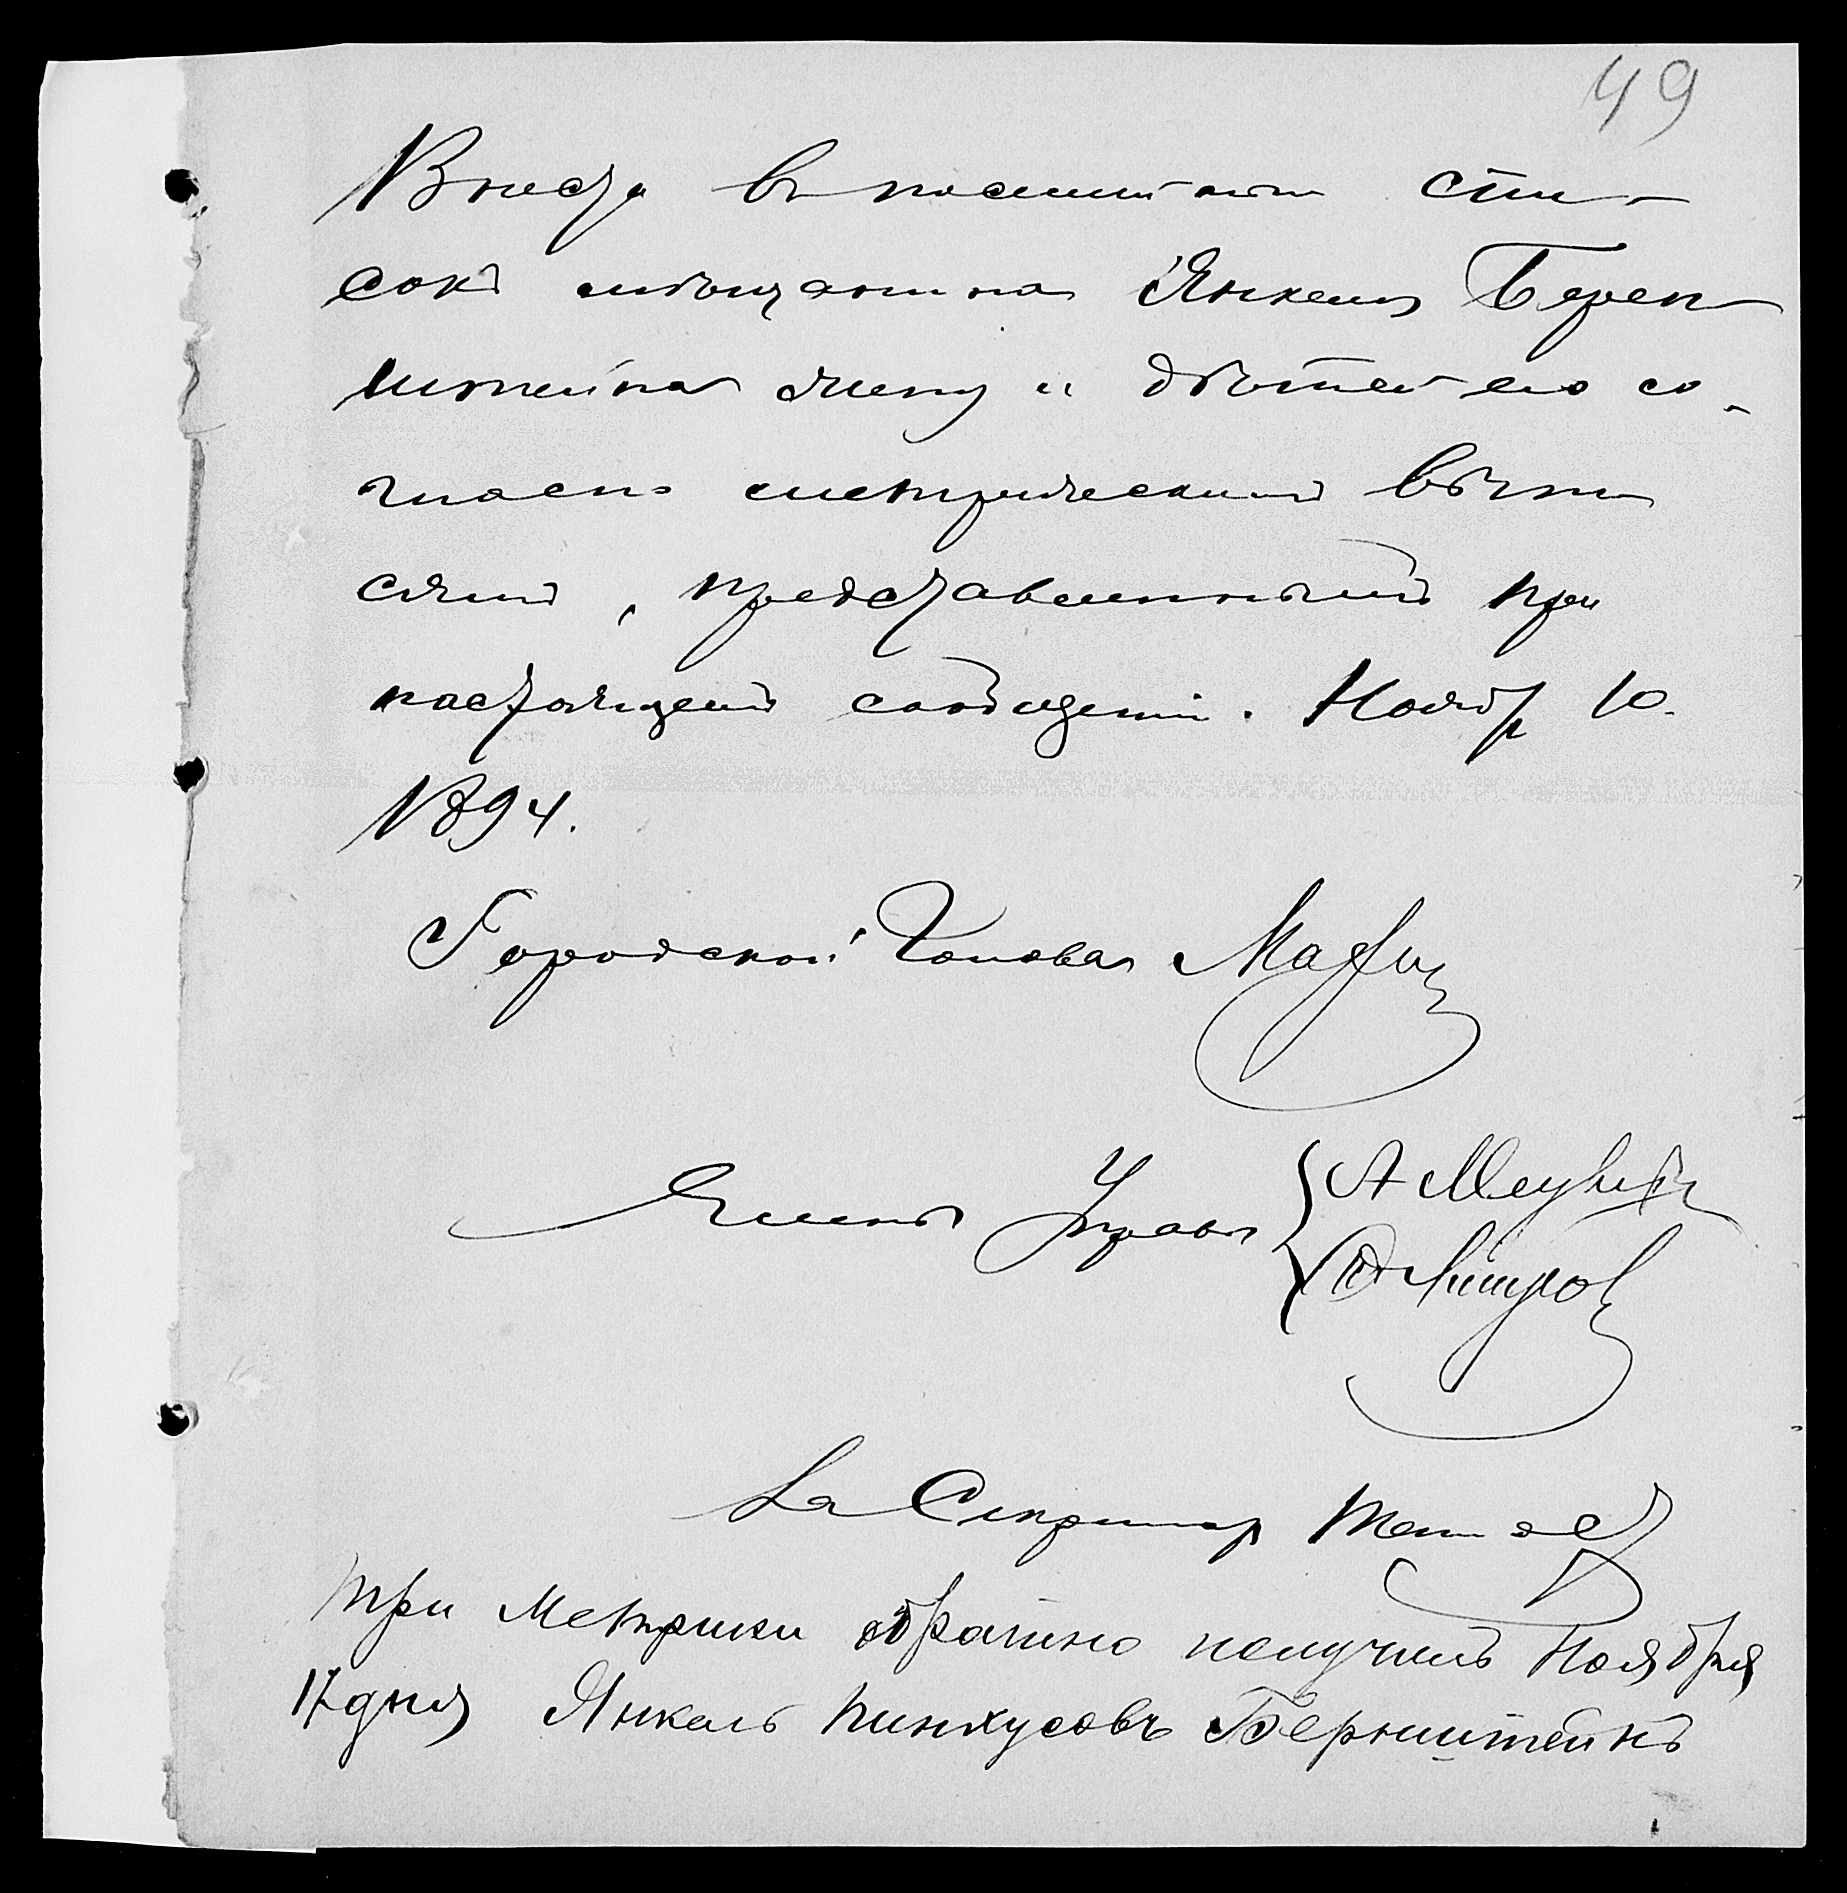 49
Внести въ посемейный спи-
сокъ мѣщанина Янкеля Берен
штейна жену и дѣтей его со-
гласно метрическимъ выпи
сямъ, представленнымъ при
настоящемъ сообщеніи. Ноябр 10.
1894.
Городской Голова
Члены Управы
За Секретар
три метрики обратно получилъ Ноября
17 дня Янкель Пинхусовъ Бернштейнъ